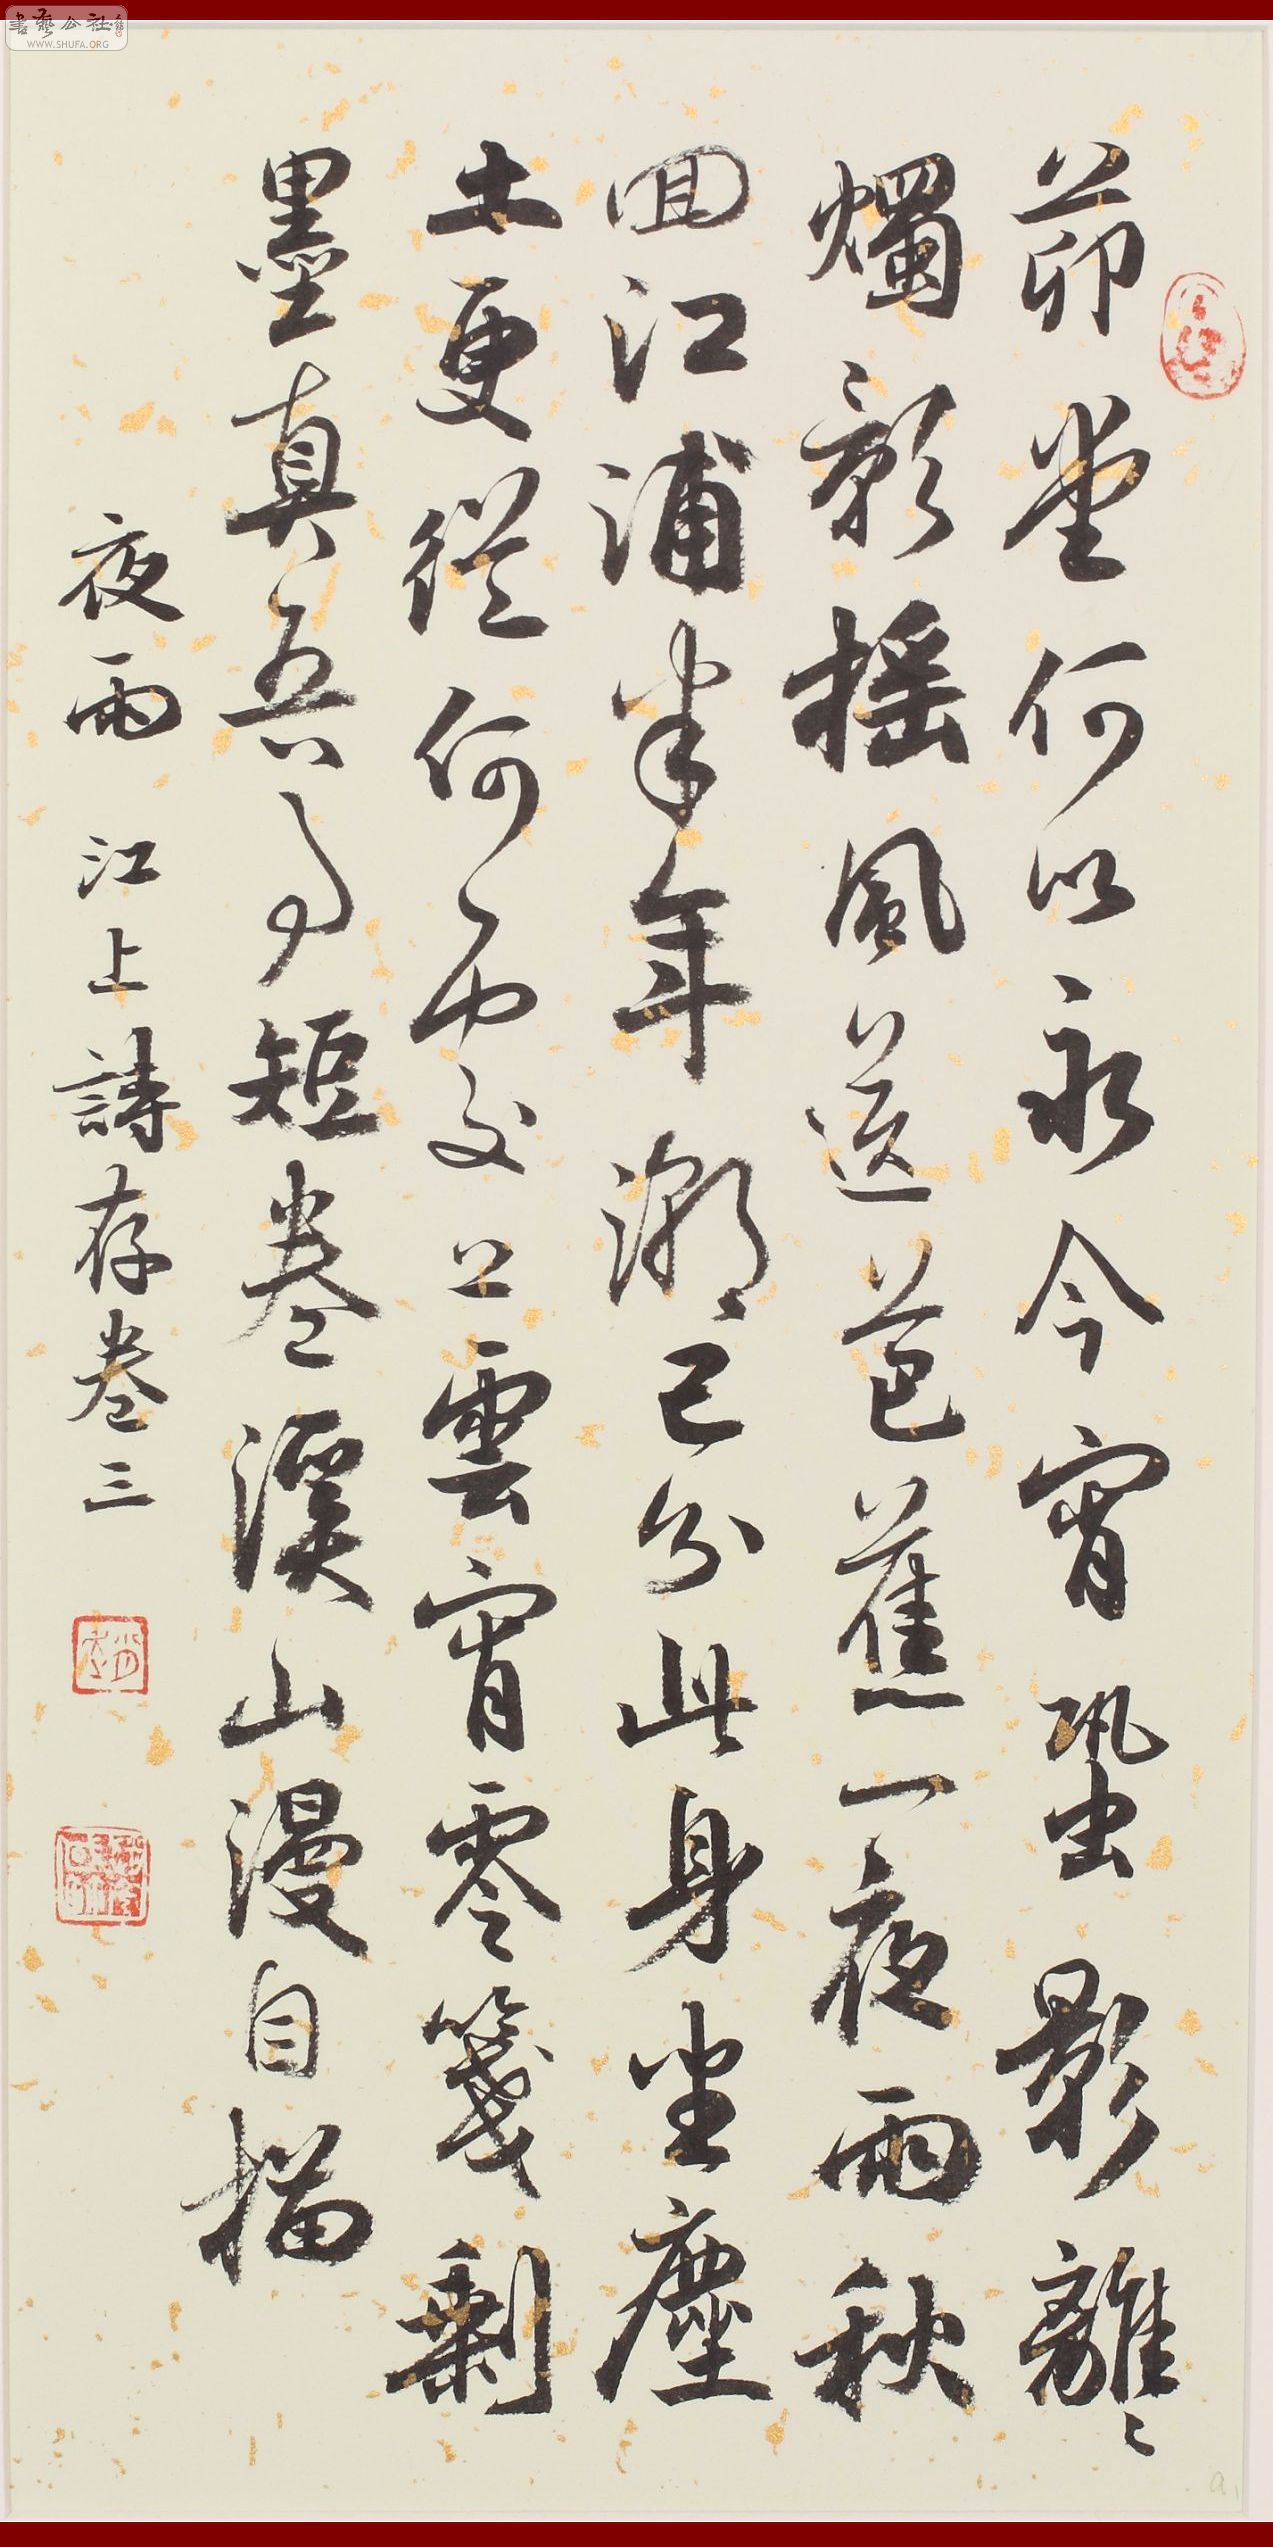 茆堂何以永今宵蛩影離〻
燭影搖風送芭蕉一夜雨秋
回江浦半年潮已分此身坐塵
土更從何處交上雲宵零箋剩
墨真吾事短卷溪山漫自描
夜雨 江上詩存卷三
書藝公社
WWW.SHUFA.ORG